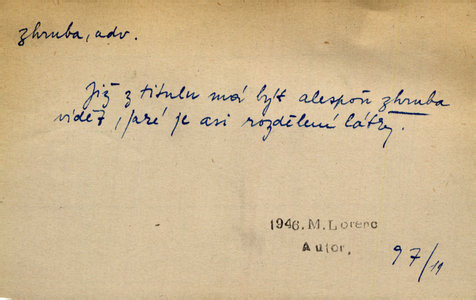 zhruba, adv.
Již z titulu má být alespoň zhruba
vidět, jaré je asi rozdělení látky.
1946. M. Lorenc
Autor.
97/11